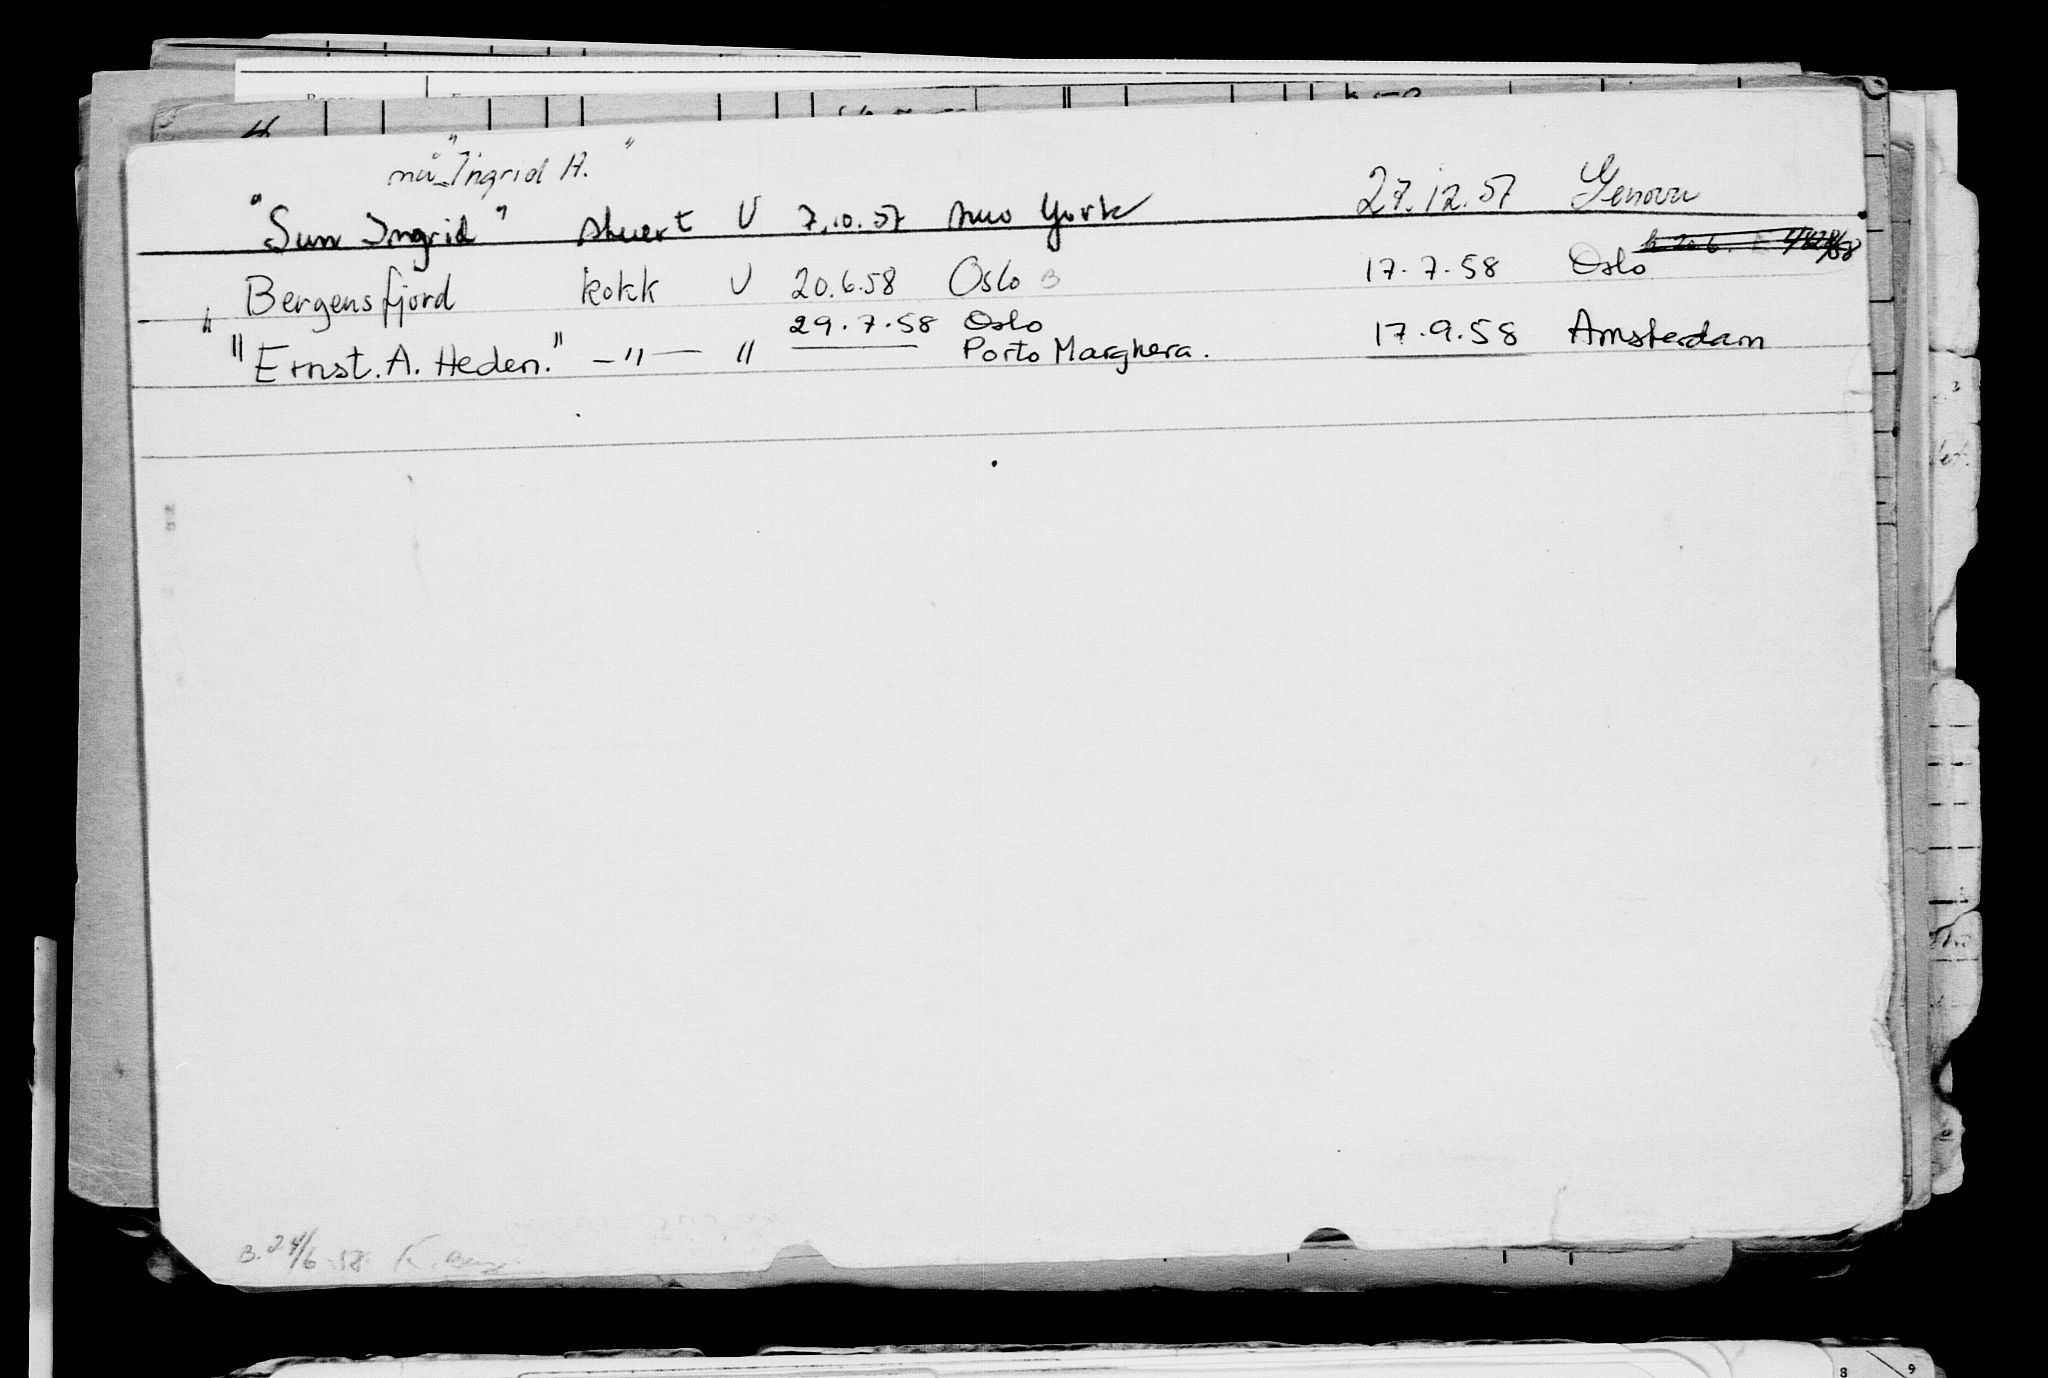 nå "Ingrid H."
"Sun Ingrid" stuert U 7.10.57 New York 27.12.57 Genova
Bergensfjord kokk U 20.6.58 Oslo B 17.7.58 Oslo
29.7.58 Oslo
"Ernst. A. Heden." — " — " Porto Marghera. 17.9.58 Amsterdam
B. 24/6 58 K.
8 9